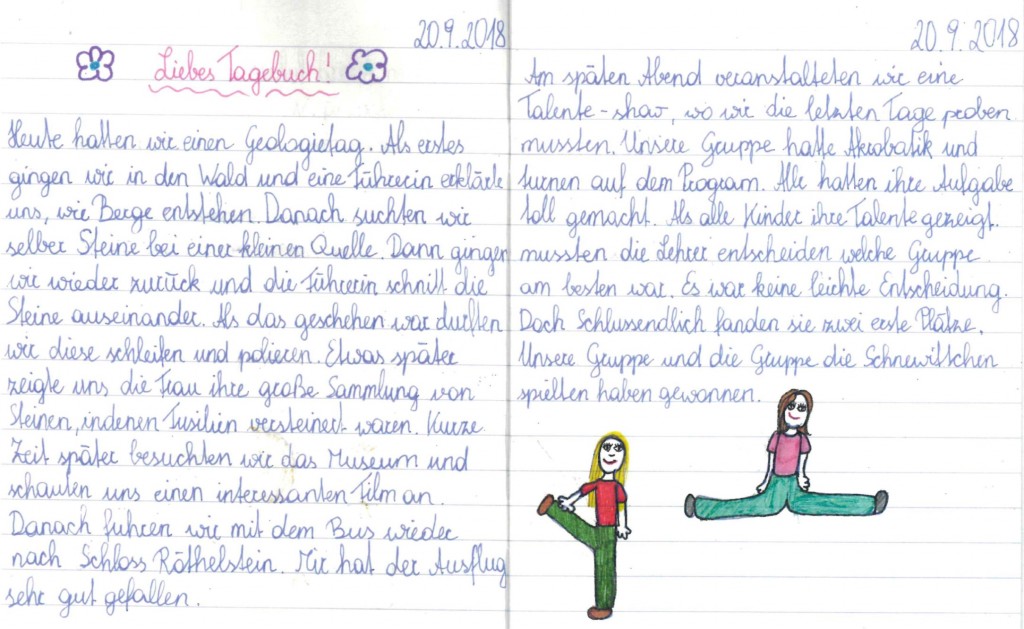 20.9.2018
Liebes Tagebuch!
Heute hatten wir einen Geologietag. Als erstes
gingen wir in den Wald und eine Führerin erklärte
uns, wie Berge entstehen. Danach suchten wir
selber Steine bei einer kleinen Quelle. Dann gingen
wir wieder zurück und die Führerin schnitt die
Steine auseinander. Als das geschehen war durften
wir diese schleifen und polieren. Etwas später
zeigte uns die Frau ihre große Sammlung von
Steinen, indenen Fusilien versteinert waren. Kurze
Zeit später besuchten wir das Museum und
schauten uns einen interessanten Film an.
Danach fuhren wir mit dem Bus wieder
nach Schloss Röthelstein. Mir hat der Ausflug
sehr gut gefallen.
20.9.2018
Am späten Abend veranstalteten wir eine
Talente-show, wo wir die letzten Tage proben
mussten. Unsere Gruppe hatte Akrobatik und
turnen auf dem Program. Alle hatten ihre Aufgabe
toll gemacht. Als alle Kinder ihre Talente gezeigt.
mussten die Lehrer entscheiden welche Gruppe
am besten war. Es war keine leichte Entscheidung.
Doch Schlussendlich fanden sie zwei erste Plätze.
Unsere Gruppe und die Gruppe die Schnewittchen
spielten haben gewonnen.